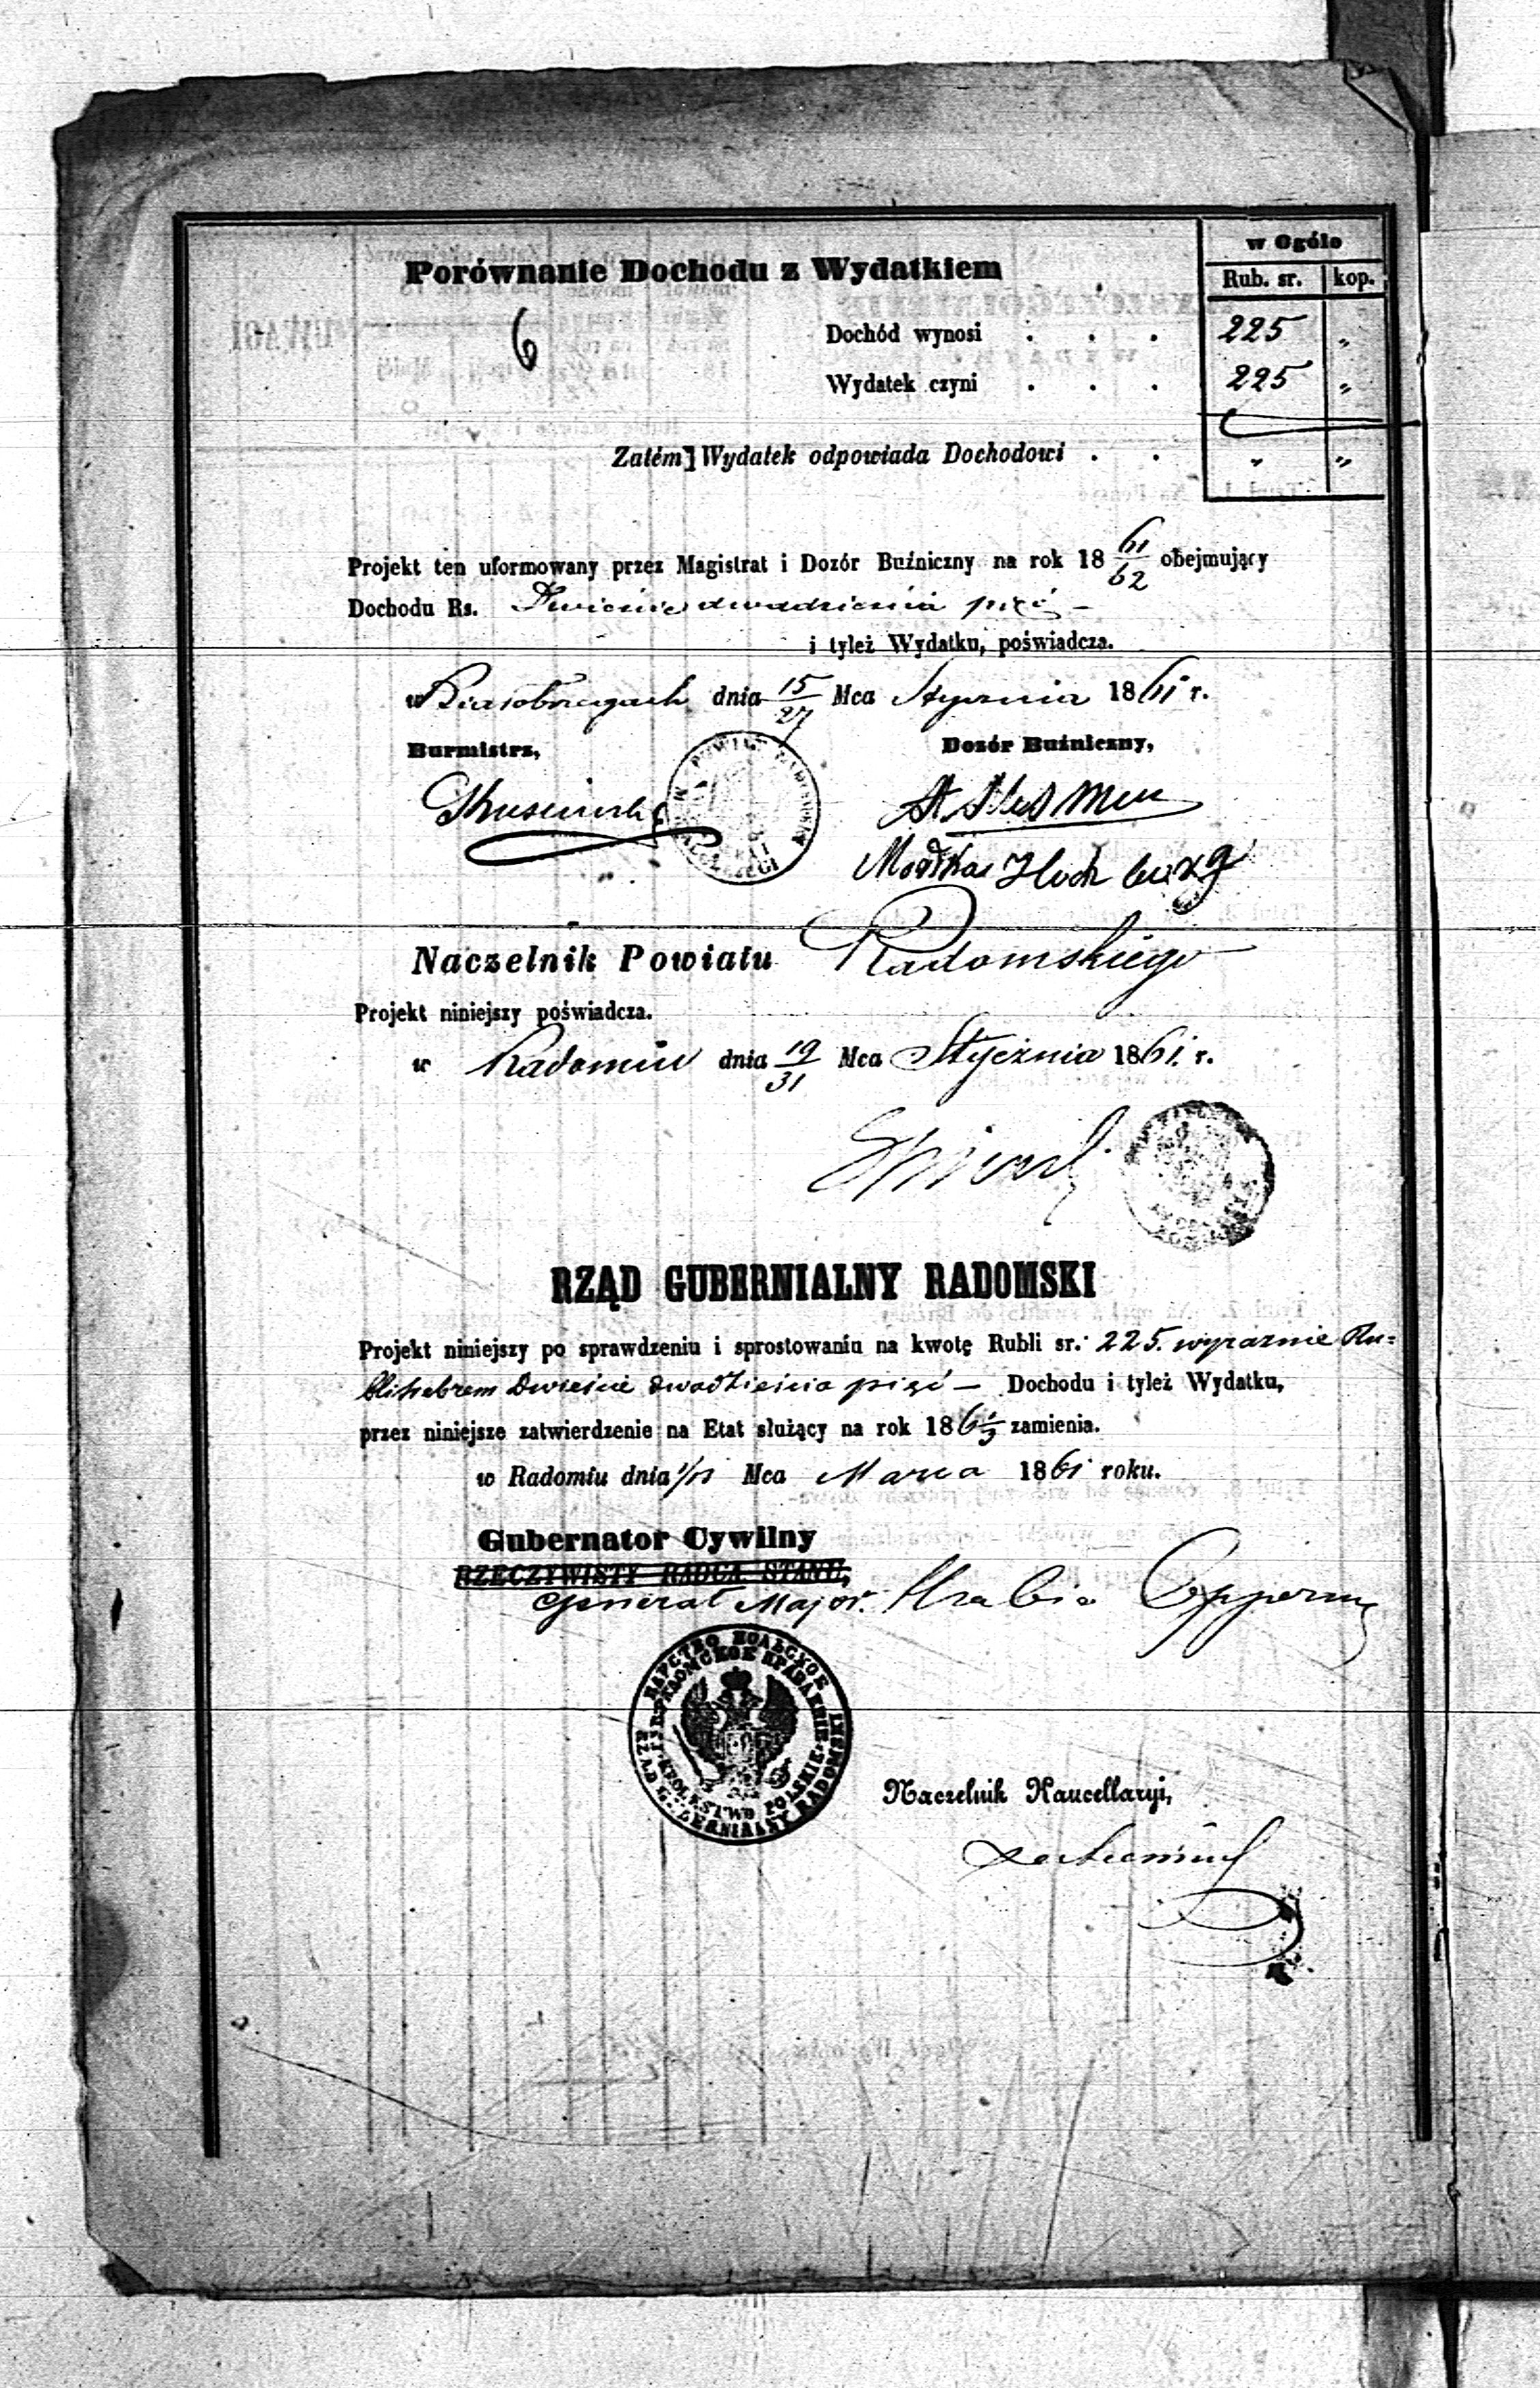 w Ogóle
Porównanie Dochodu z Wydatkiem
Rub. sr. kop.
6
Dochód wynosi . . . 225 „
Wydatek czyni . . . 225 „
Zatém Wydatek odpowiada Dochodowi . . „ „
Projekt ten uformowany przez Magistrat i Dozór Buźniczny na rok 18 61/62 obejmujący
Dochodu Rs. Dwieście dwadzieścia pięć —
i tyleż Wydatku, poświadcza.
w Białobrzegach dnia 15/27 Mca Stycznia 1861 r.
Burmistrz,
Dozór Buźniczny,
Naczelnik Powiatu Radomskiego
Projekt niniejszy poświadcza.
w Radomiu dnia 19/31 Mca Stycznia 1861 r.
RZĄD GUBERNIALNY RADOMSKI
Projekt niniejszy po sprawdzeniu i sprostowaniu na kwotę Rubli sr. 225. wyraznie Ru=
bli srebrem Dwieście dwadzieścia pięć — Dochodu i tyleż Wydatku,
przez niniejsze zatwierdzenie na Etat służący na rok 186 1/3 zamienia.
w Radomiu dnia Mca Marca 1861 roku.
Gubernator Cywilny
RZECZYWISTY RADCA STANU,
Generał Major. Hrabia Opperman
ЦАРСТВО ПОЛЬСКОЕ
РАДОМСКОЕ ПРАВЛЕНІЕ
KRÓLESTWO POLSKIE
RZĄD GUBERNIALNY RADOMSKI
Naczelnik Kancellaryi,